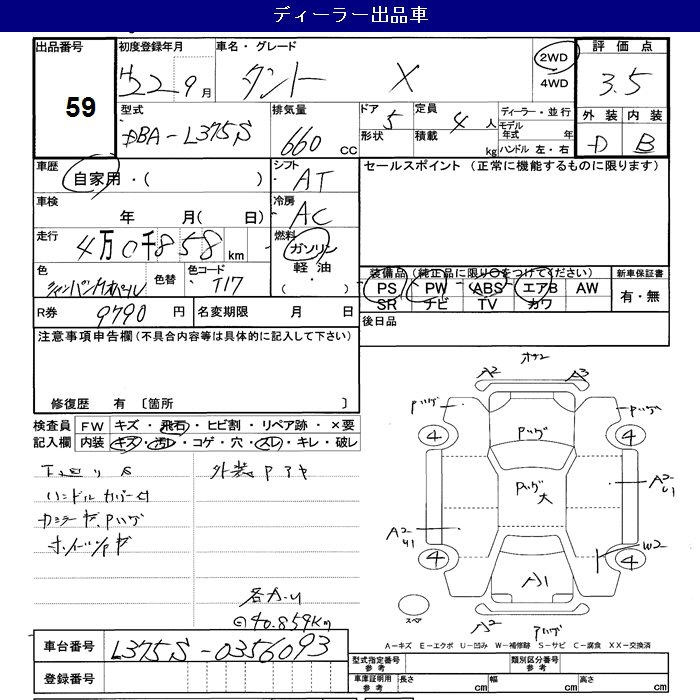 ディーラー出品車
出品番号
59
初度登録年月
H22 9月
車名・グレード
タント X
2WD
4WD
評価点
3.5
外装 内装
D B
型式
DBA-L375S
排気量
660 CC
ドア 5
形状
定員 4人
積載 kg
ディーラー・並行
モデル年式 年
ハンドル 左・右
車歴
自家用・( )
シフト
AT
セールスポイント (正常に機能するものに限ります)
車検
年 月( 日)
冷房
AC
走行
4万0千858km
燃料
ガソリン
軽油
・( )
色
シャンパンゴールドオパール
色替
色コード
T17
装備品(純正品に限り○をつけてください)
PS PW ABS エアB AW
SR ナビ TV カワ
新車保証書
有・無
R券 9790円
名変期限 月 日
後日品
注意事項申告欄(不具合内容等は具体的に記入して下さい)
修復歴 有〔箇所
検査員
記入欄
FW キズ・飛石・ヒビ割・リペア跡・×要
内装 キズ・汚レ・コゲ・穴・スレ・キレ・破レ
下廻りS
ハンドルカバー付
外装Pアキ
各カ・U
⊖40.859Km
A2 A3
Pハゲ
Pハゲ
Pハゲ
Pハゲ大
4 4
4 4
A2
U1
A2
U1
W2
A1
A2
スペア
A-キズ E-エクボ U-凹み W-補修跡 S-サビ C-腐食 XX-交換済
車台番号 L375S-0356093
登録番号
型式指定番号
参考
類別区分番号
参考
車庫証明用
参考
長さ cm 幅 cm 高さ cm